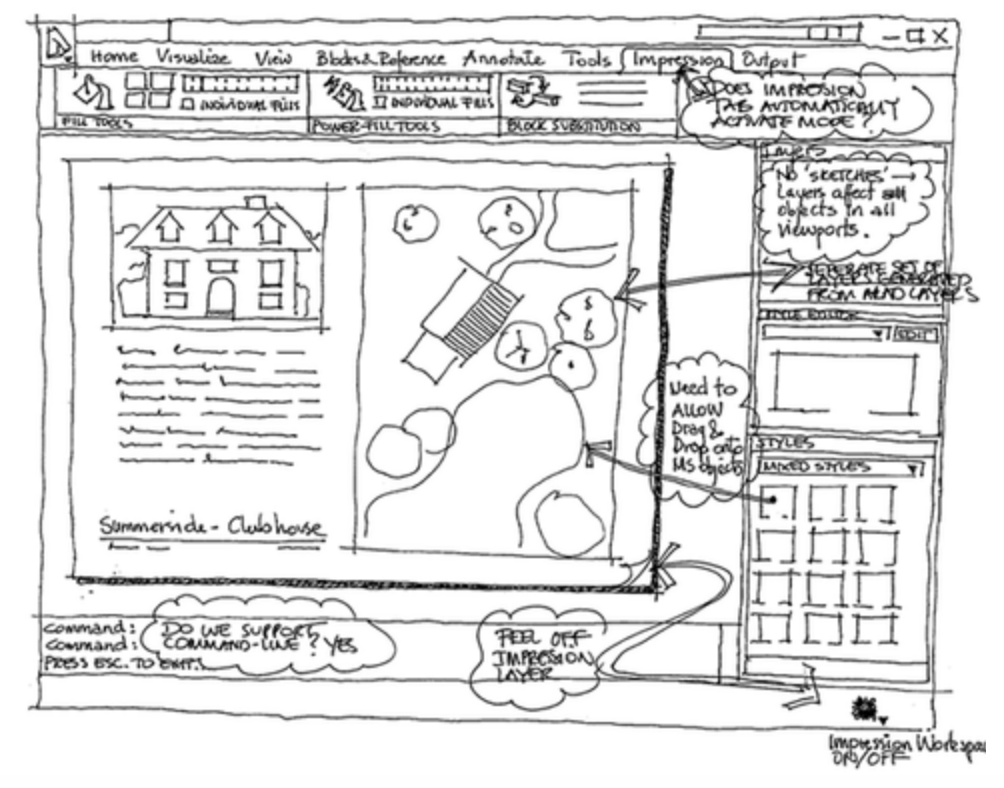 Home Visualize View Blocks & Reference Annotate Tools Impression Output
INDIVIDUAL FILLS
INDIVIDUAL FILLS
FILL TOOLS
POWER-FILL TOOLS
BLOCK SUBSTITUTION
DOES IMPRESSION
TAB AUTOMATICALLY
ACTIVATE MODE?
Layers
NO 'SKETCHES' →
Layers affect all
objects in all
viewports.
SEPERATE SET OF
LAYERS GENERATED
FROM ACAD LAYERS
STYLE EDITOR
EDIT
Need to
ALLOW
Drag &
Drop onto
MS objects
STYLES
MIXED STYLES
Summerside - Clubhouse
Command:
Command:
PRESS ESC. TO
DO WE SUPPORT
COMMAND-LINE? YES
PEEL OFF
IMPRESSION
LAYER
Impression Workspac
ON/OFF